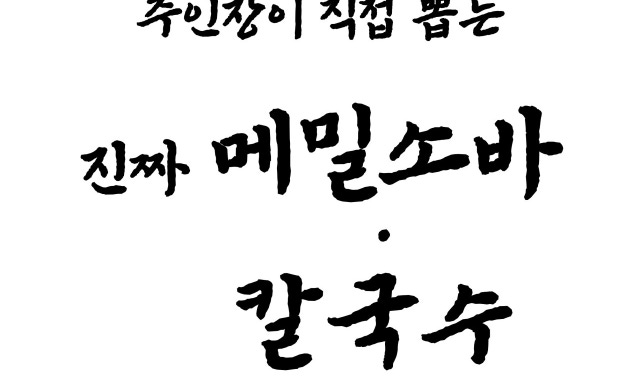 주인장이 직접 뽑는
진짜 메밀소바
·
칼국수